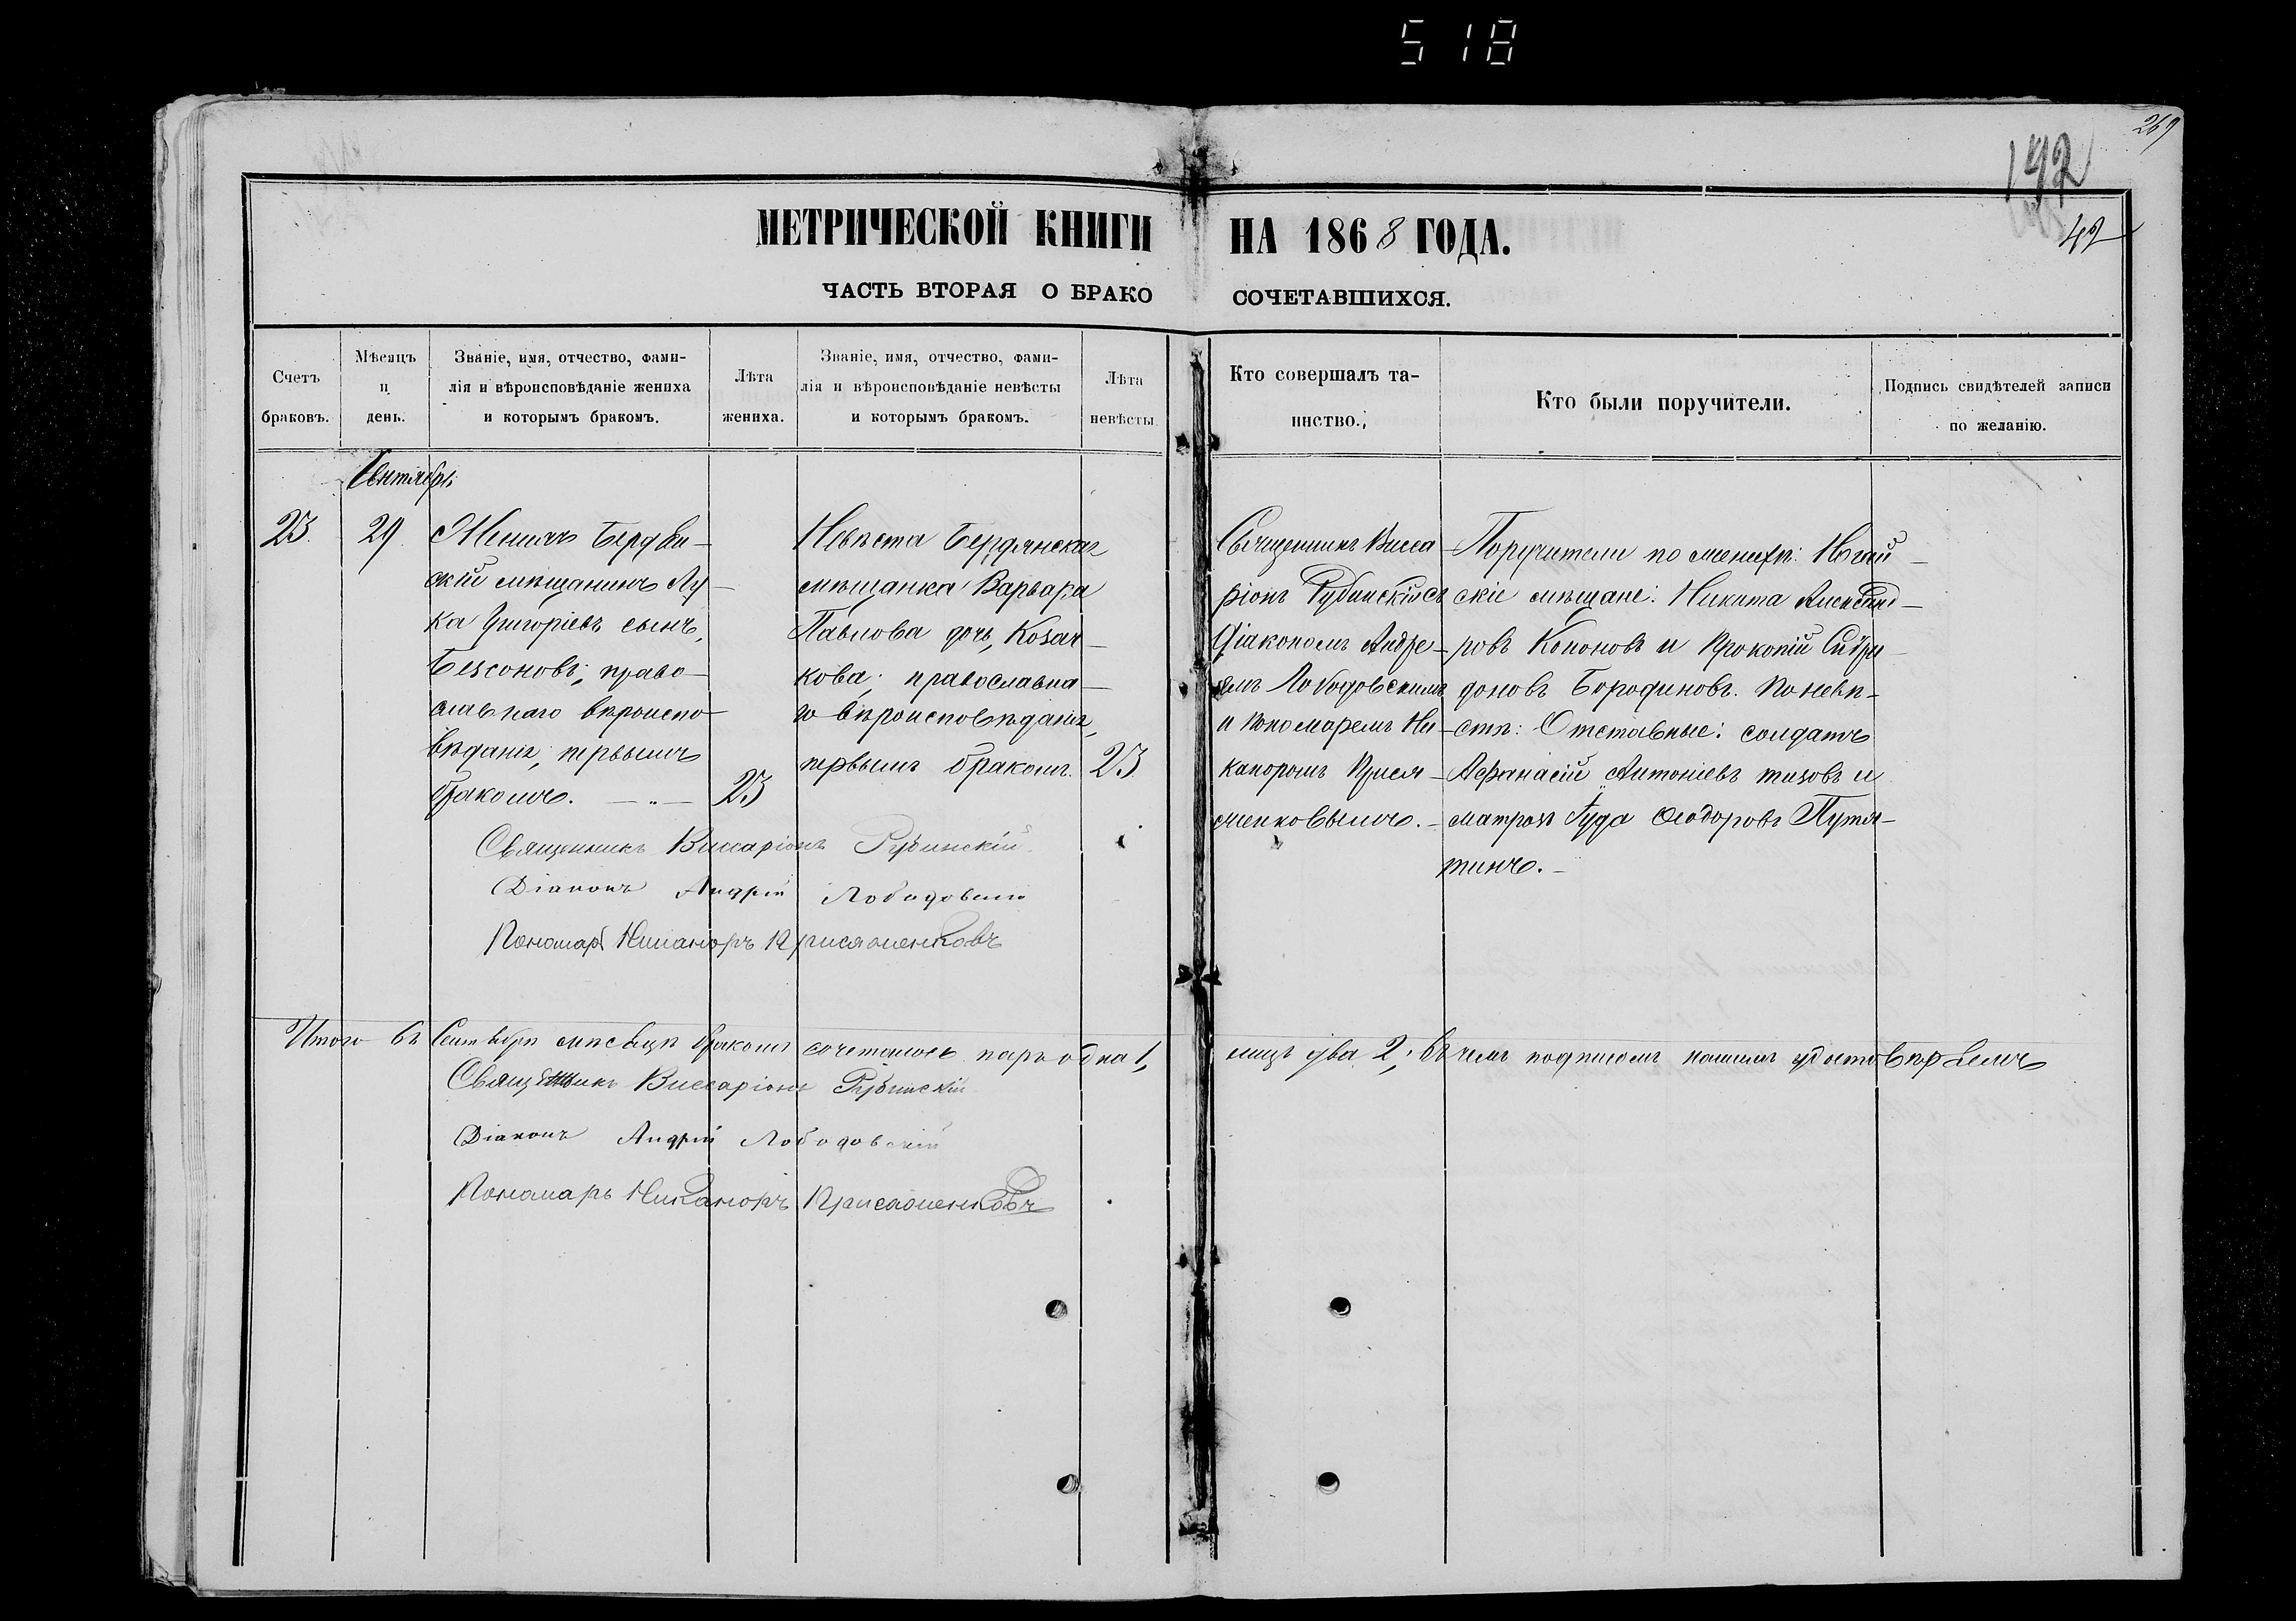 518
269
142
42
МЕТРИЧЕСКОЙ КНИГИ НА 1868 ГОДА.
ЧАСТЬ ВТОРАЯ О БРАКОСОЧЕТАВШИХСЯ.
Счетъ
браковъ.
Мѣсяцъ
и
день.
Званіе, имя, отчество, фами-
лія и вѣроисповѣданіе жениха
и которымъ бракомъ.
Лѣта
жениха.
Званіе, имя, отчество, фами-
лія и вѣроисповѣданіе невѣсты
и которымъ бракомъ.
Лѣта
невѣсты.
Кто совершалъ та-
инство.
Кто были поручители.
Подпись свидѣтелей записи
по желанію.
Сентябрь
23.
29
Женихъ Бердян-
скій мѣщанинъ Лу-
ка Григоріевъ сынъ,
Безсоновъ; право-
славнаго вѣроиспо-
вѣданія, первымъ
бракомъ. — „ —
23
Невѣста Бердянская
мѣщанка Варвара
Павлова дочь, Козач-
кова; православна-
го вѣроисповѣданія,
первымъ бракомъ.
23
Священникъ Висса-
ріонъ Рубинскій съ
Діакономъ Андре-
емъ Лободовскимъ
и Пономаремъ Ни-
каноромъ Прися-
женковымъ.
Поручители по женихѣ: Ногай-
скіе мѣщане: Никита Александ-
ровъ Кононовъ и Прокопій Спѵри-
доновъ Бородиновъ. По невѣ-
стѣ: Отставные: солдатъ
Афанасій Антоніевъ тизовъ и
матрозъ Іуда Ѳеодоровъ Путя-
тинъ. —
Священникъ Виссаріонъ Рубинскій
Діаконъ Андрій Лободовскій
Пономарь Никаноръ Присяженковъ
Итого въ Сентябрѣ мѣсяцѣ бракомъ сочеталось паръ одна 1, лицъ два 2; въ чемъ подписомъ нашимъ удостовѣряемъ
Священникъ Виссаріонъ Рубинскій
Діаконъ Андрій Лободовскій
Пономарь Никаноръ Присяженковъ